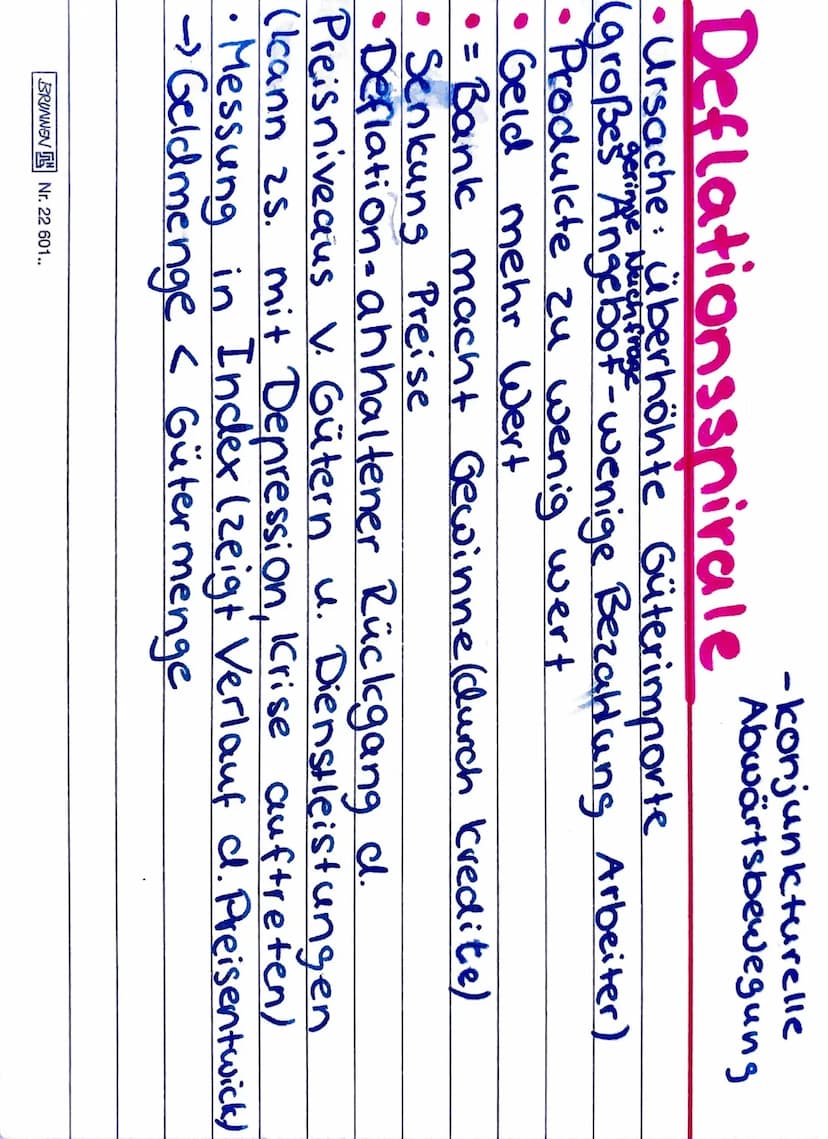 -konjunkturelle
Abwärtsbewegung
Deflationsspirale
• Ursache: überhöhte Güterimporte
geringe Nachfrage
(großes Angebot-wenige Bezahlung Arbeiter)
• Produkte zu wenig wert
• Geld mehr Wert
• = Bank macht Gewinne (durch Kredite)
• Senkung Preise
• Deflation=anhaltener Rückgang d.
Preisniveaus v. Gütern u. Dienstleistungen
(kann zs. mit Depression, Krise auftreten)
• Messung in Index (zeigt Verlauf d. Preisentwick)
→ Geldmenge < Gütermenge
BRUNNEN Nr. 22 601..